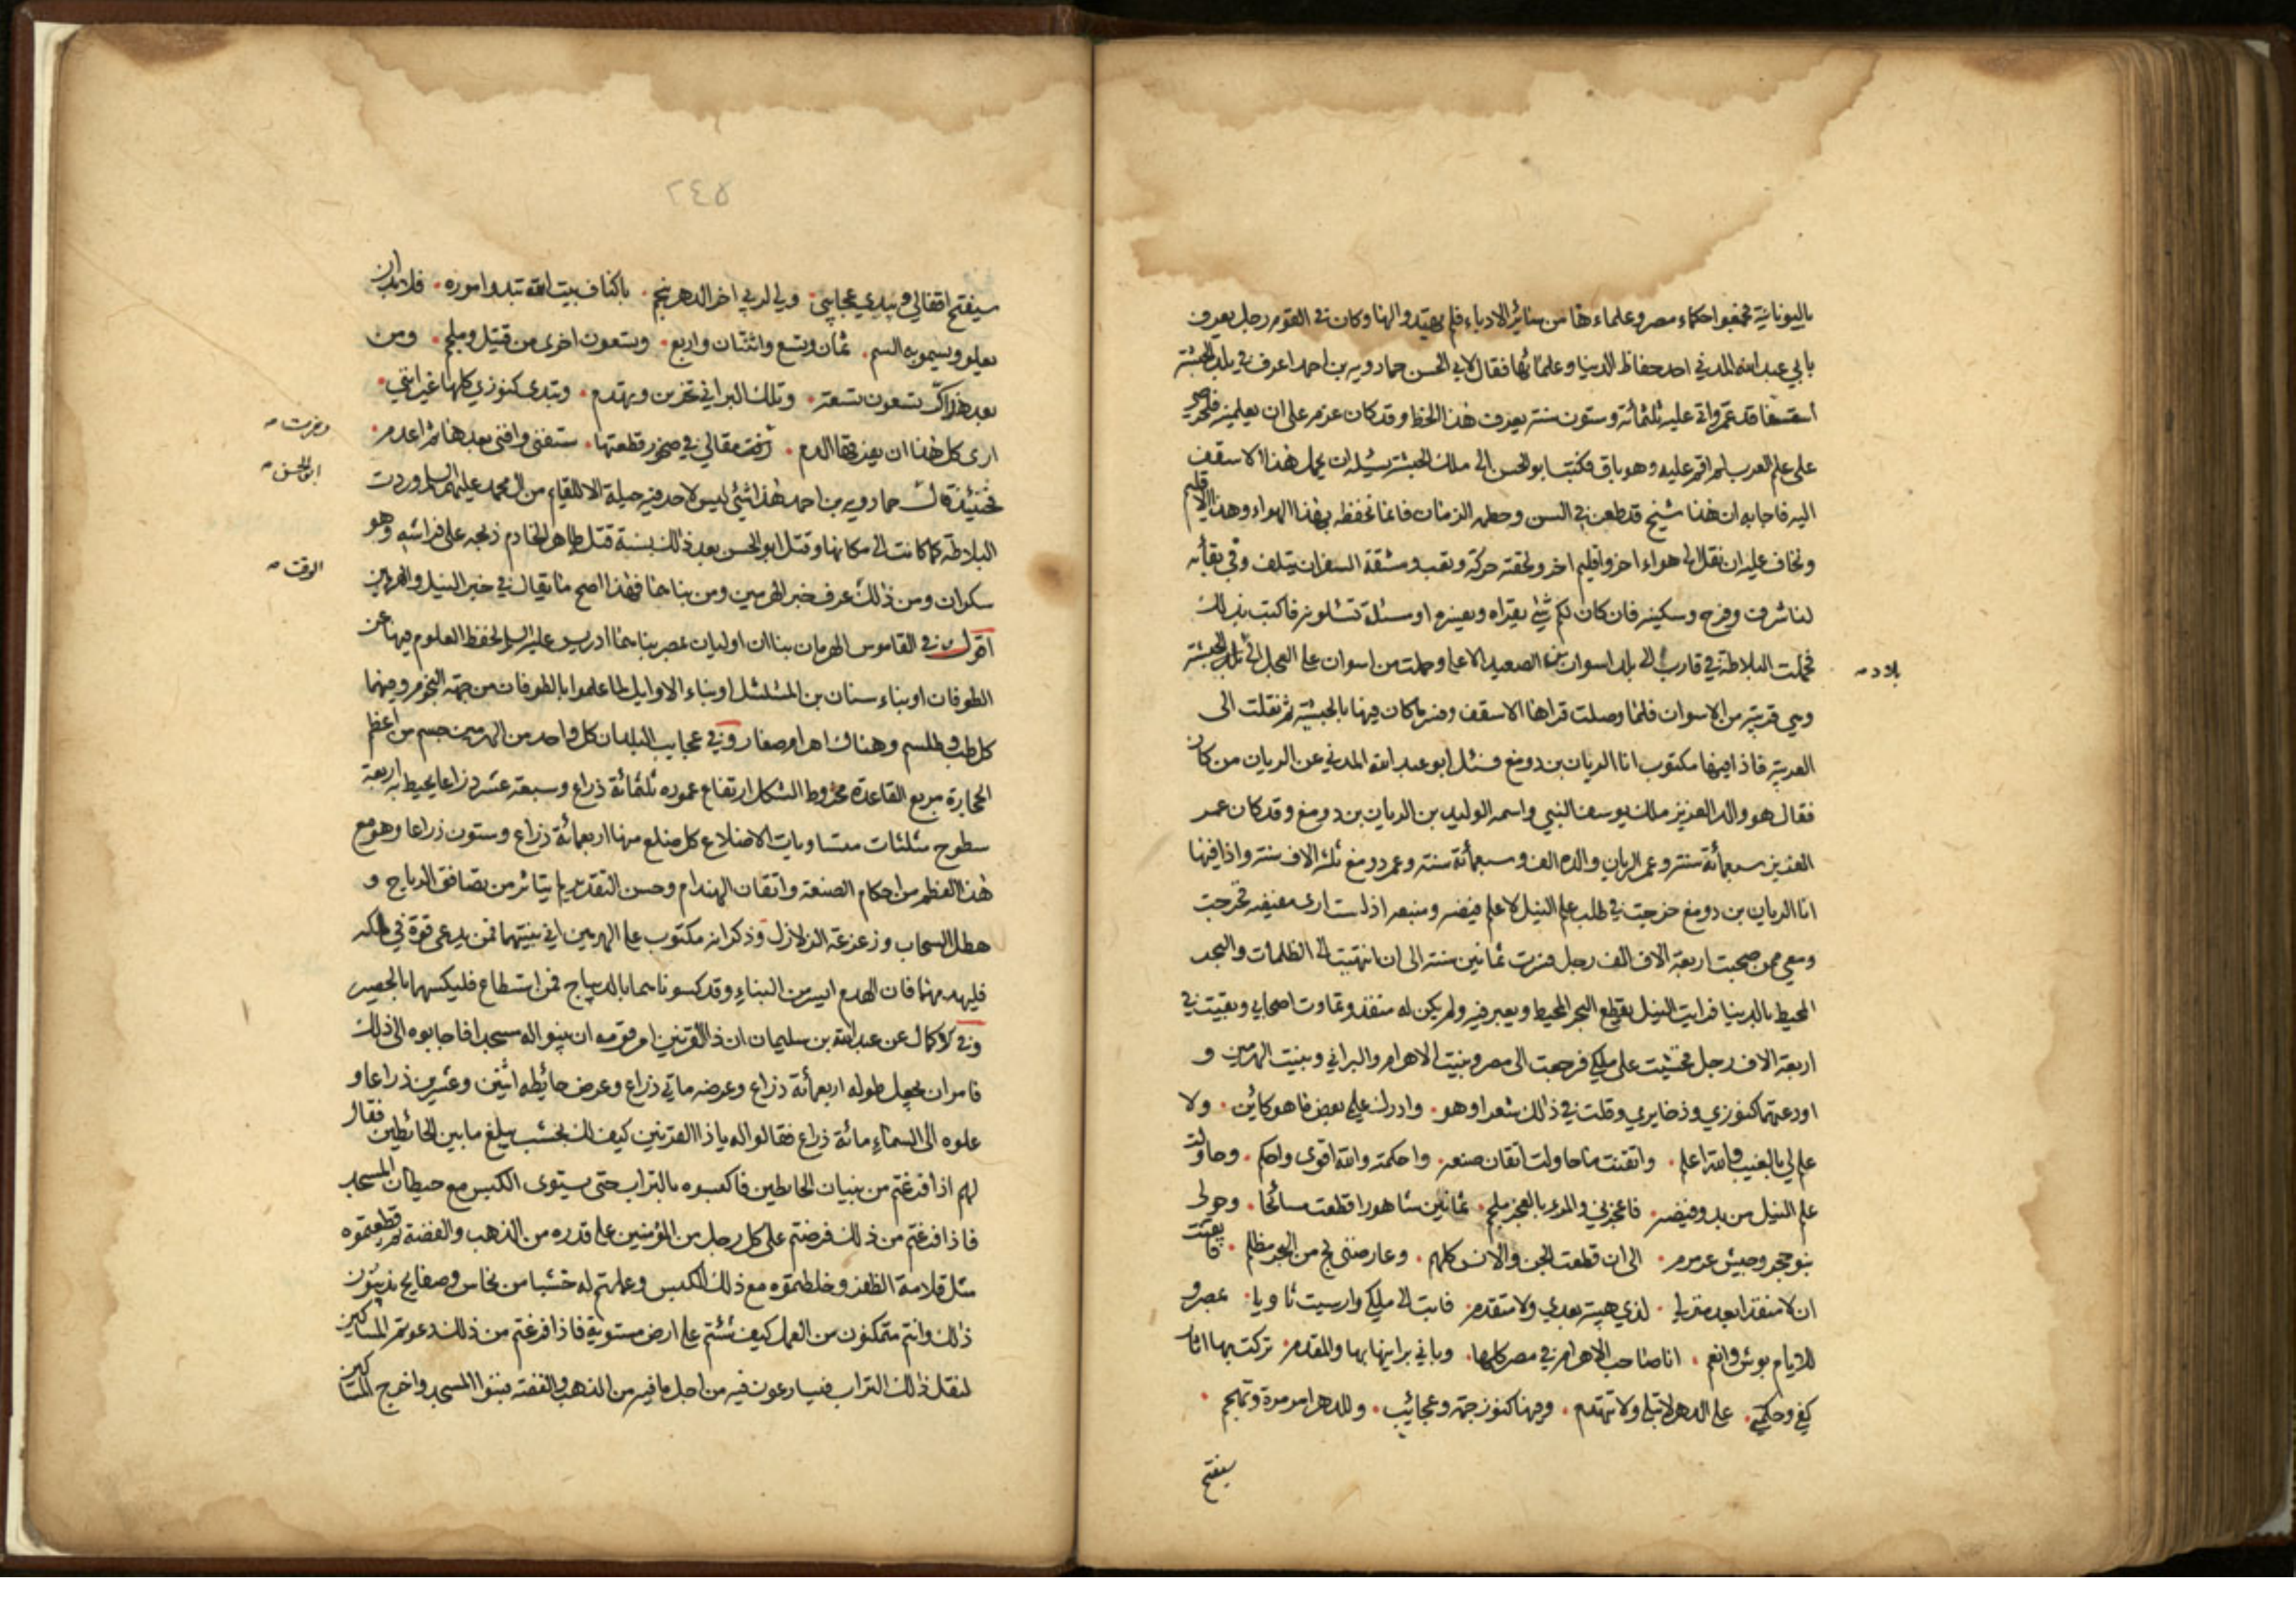 باليونانية فجمعوا حكماء مصر وعلماءها من سائر الادباء فلم يهتدوا لها وكان في القوم رجل يعرف
بابي عبد الله المدني احد حفاظ الدنيا وعلمائها فقال لابي الحسن حمادويه بن احمد اعرف في بلد الحبشة
اسقفا قد عمر واتى عليه ثلثمائة وستون سنة يعرف هذا الخط وقد كان عزم على ان يعلمنيه فلحرصي
على علم العرب لم اقم عليه وهو باق فكتب ابو الحسن الى ملك الحبشة يسئله ان يحمل هذا الاسقف
اليه فاجابه ان هذا شيخ قد طعن في السن وحطمه الزمان فانما تحفظه بهذا الهواء وهذا الاقليم
ونخاف عليه ان نقل الى هواء اخر واقليم اخر ولحقته حركة وتعب ومشقة السفر ان يتلف وفي بقائه
لنا شرف وفرح وسكينة فان كان لكم شيء يقراه ويفسره او مسئلة تسئلونه فاكتب بذلك
فحملت البلاطة في قارب الى بلد اسوان من الصعيد الاعلى وحملت من اسوان على العجل الى بلد الحبشة
بلاد
وهي قريبة من الاسوان فلما وصلت قراها الاسقف وفسر ما كان فيها بالحبشية ثم نقلت الى
العربية فاذا فيها مكتوب انا الريان بن دومغ فسئل ابو عبد الله المدني عن الريان من كان
فقال هو والد العزيز ملك يوسف النبي واسمه الوليد بن الريان بن دومغ وقد كان عمر
العزيز سبعمائة سنة وعمر الريان والده الف وسبعمائة سنة وعمر دومغ ثلثة الاف سنة واذا فيها
انا الريان بن دومغ خرجت في طلب علم النيل لاعلم فيضه ومنبعه اذ لست ارى مفيضه فخرجت
ومعي ممن صحبت اربعة الاف الف رجل فسرت ثمانين سنة الى ان انتهيت الى الظلمات والبحر
المحيط بالدنيا فرايت النيل يقطع البحر المحيط ويعبر فيه ولم يكن له منفذ وتماوت اصحابي وبقيت في
اربعة الاف رجل فخشيت على ملكي فرجعت الى مصر وبنيت الاهرام والبراني وبنيت الهرمين و
اودعتهما كنوزي وذخايري وقلت في ذلك شعرا وهو وادرك علمي بعض ما هو كائن ولا
علم لي بالغيب والله اعلم واتقنت ما حاولت اتقان صنعه واحكمته والله اقوى واحكم وحاولت
علم النيل من بدو فيضه فاعجزني والمرء بالعجز ملجم ثمانين شاهورا قطعت سائحا وحولي
بنو حجر وجيش عرمرم الى ان قطعت الجن والانس كلهم وعارضني لج من البحر مظلم فايقنت
ان لا منفذ ابعد منزلي لذي هيبة بعدي ولا متقدم فابت الى ملكي وارسيت ثاويا بمصر و
للايام بوس وانعم انا صاحب الاهرام في مصر كلها وباني برانيها بها والمقدم تركت بها اثار
كفي وحكمتي على الدهر لا تبلى ولا تتهدم وفيها كنوز جمة وعجائب وللدهر امر مرة وتهجم
سيفتح
٢٤٥
سيفتح اقفالي ويبدي عجايبي ولي لربي اخر الدهر ينجم باكناف بيت الله تبدو اموره فلا بد ان
يعلو ويسمو به السم ثمان وتسع واثنتان واربع وتسعون اخرى من قتيل وملجم ومن
بعد هذا كر تسعون تسعة وتلك البراني تخربن وتهدم وتبدى كنوزي كلها غير انني
ارى كل هذا ان يفرقها الدم زبرت مقالي في صخور قطعتها ستفنى وافنى بعدها ثم اعدم
وزبرت
فحينئذ قال حمادويه بن احمد هذا شيء ليس لاحد فيه حيلة الا للقايم من ال محمد عليهم السلام وردت
ابو الحسن
البلاطة كما كانت الى مكانها وقتل ابو الحسن بعد ذلك بسنة قتله طاهر الخادم ذبحه على فراشه وهو
سكران ومن ذلك عرف خبر الهرمين ومن بناهما فهذا اصح ما يقال في خبر النيل والهرمين
الوقت
اقول في القاموس الهرمان بناان اوليان بمصر بناهما ادريس عليه السلام لحفظ العلوم فيها عن
الطوفان او بناء سنان بن المشلشل او بناء الاوايل لما علموا بالطوفان من جهة النجوم وفيهما
كل طب وطلسم وهناك اهرام صغار وفي عجايب البلدان كل واحد من الهرمين جسم من اعظم
الحجارة مربع القاعدة مخروط الشكل ارتفاع عموده ثلثمائة ذراع وسبعة عشر ذراعا يحيط به اربعة
سطوح مثلثات متساويات الاضلاع كل ضلع منها اربعمائة ذراع وستون ذراعا وهو مع
هذا العظم من احكام الصنعة واتقان الهندام وحسن التقدير لم يتاثر من تصافق الرياح و
هطل السحاب وزعزعة الزلازل وذكر انه مكتوب على الهرمين اني بنيتهما فمن يدعى قوة في ملكه
فليهدمهما فان الهدم ايسر من البناء وقد كسوناهما بالديباج فمن استطاع فليكسهما بالحصير
وفي الاكمال عن عبد الله بن سليمان ان ذا القرنين امر قومه ان يبنوا له مسجدا فاجابوه الى ذلك
فامر ان يجعل طوله اربعمائة ذراع وعرضه ماتي ذراع وعرض حائطه اثنين وعشرين ذراعا و
علوه الى السماء مائة ذراع فقالوا له يا ذا القرنين كيف لك بخشب يبلغ ما بين الحائطين فقال
لهم اذا فرغتم من بنيان الحائطين فاكبسوه بالتراب حتى يستوى الكبس مع حيطان المسجد
فاذا فرغتم من ذلك فرضتم على كل رجل من المؤمنين على قدره من الذهب والفضة ثم قطعتموه
مثل قلامة الظفر وخلطتموه مع ذلك الكبس وعملتم له خشبا من نحاس وصفايح تذيبون
ذلك وانتم متمكنون من العمل كيف شئتم على ارض مستوية فاذا فرغتم من ذلك دعوتم المساكين
لنقل ذلك التراب فيسارعون فيه من اجل ما فيه من الذهب والفضة فبنوا المسجد واخرج المساكين